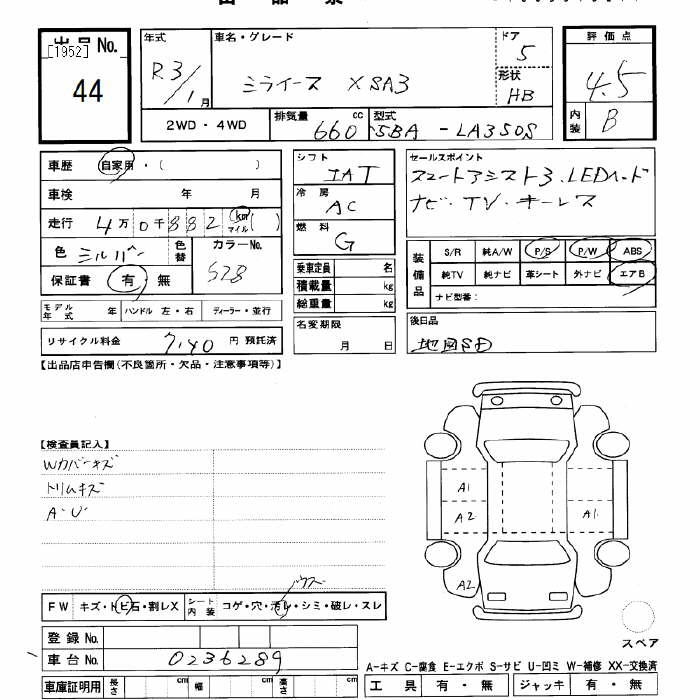 出品票
出品 No.
[1952]
44
年式
R3/1月
車名・グレード
ミライース X SA3
ドア
5
形状
HB
評価点
4.5
内装
B
2WD・4WD
排気量
660 cc
型式
5BA - LA350S
車歴 自家用・( )
車検 年 月
走行 4万0千882 km マイル ( )
色 シルバー
色替
カラーNo.
S28
保証書 有・無
モデル年式 年
ハンドル 左・右
ディーラー・並行
リサイクル料金 7,140 円 預託済
シフト
IAT
冷房
AC
燃料
G
乗車定員 名
積載量 kg
総重量 kg
名変期限
月 日
セールスポイント
スマートアシスト3、LEDヘッド
ナビ・TV・キーレス
装備品
S/R 純A/W P/S P/W ABS
純TV 純ナビ 革シート 外ナビ エアB
ナビ型番:
後日品
地図SD
【出品店申告欄(不良箇所・欠品・注意事項等)】
【検査員記入】
Wカバーキズ
トリムキズ
A・U
A1
A2
A1
A2
FW キズ・トビ石・割レX
シート内装 コゲ・穴・汚レ・シミ・破レ・スレ
登録 No.
車台 No. 0236289
車庫証明用 長さ cm 幅 cm 高さ cm
スペア
A-キズ C-腐食 E-エクボ S-サビ U-凹ミ W-補修 XX-交換済
工具 有・無
ジャッキ 有・無